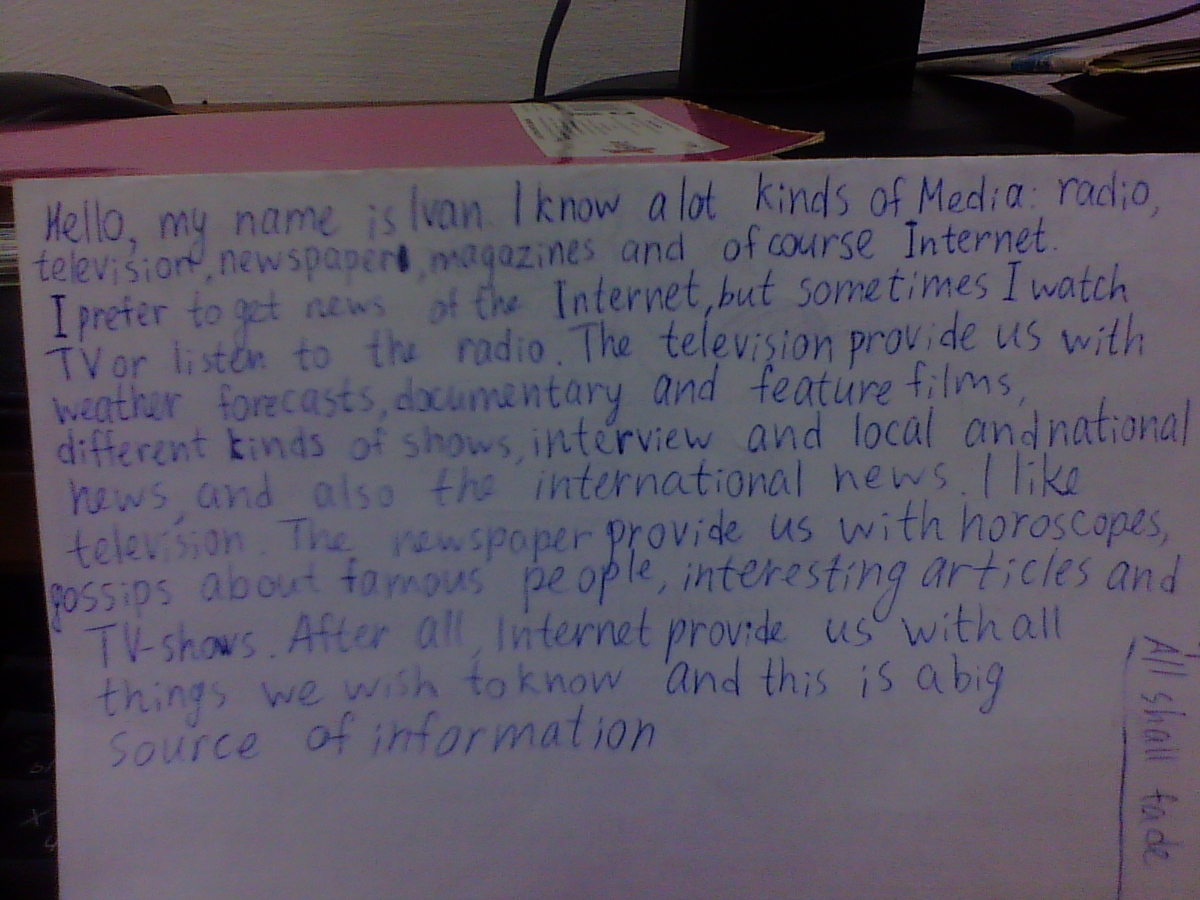 Hello, my name is Ivan. I know a lot kinds of Media: radio,
television, newspaper, magazines and of course Internet.
I prefer to get news of the Internet, but sometimes I watch
TV or listen to the radio. The television provide us with
weather forecasts, documentary and feature films,
different kinds of shows, interview and local and national
news, and also the international news. I like
television. The newspaper provide us with horoscopes,
gossips about famous people, interesting articles and
TV-shows. After all, Internet provide us with all
things we wish to know and this is a big
source of information
All shall fade